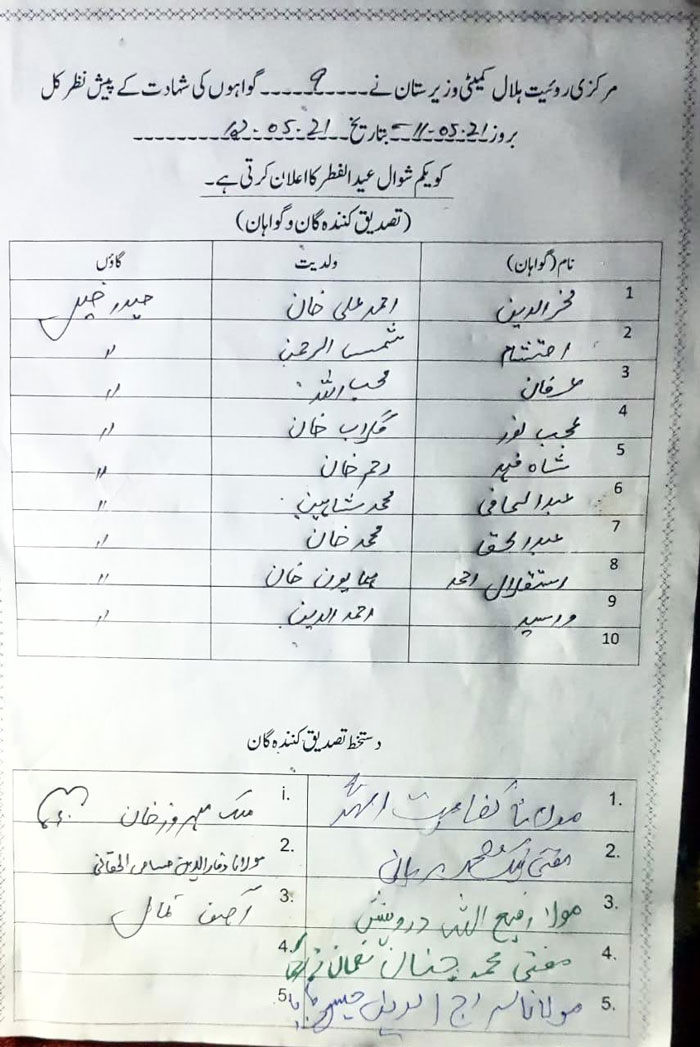 مرکزی روئیت ہلال کمیٹی وزیرستان نے ----9---- گواہوں کی شہادت کے پیش نظر کل
بروز 11.05.21 بتاریخ 12.05.21
کو یکم شوال عید الفطر کا اعلان کرتی ہے۔
(تصدیق کنندہ گان و گواہان)
نام (گواہان) ولدیت گاؤں
1 فخر الدین احمد علی خان حیدر خیل
2 احتشام شمس الرحمن "
3 عرفان محب اللہ "
4 عجب نور گلاب خان "
5 شاہ فہد رحم خان "
6 محمد شاہین "
7 عبدالحق محمد خان "
8 استقلال احمد ہمایون خان "
9 احمد الدین "
10
دستخط تصدیق کنندہ گان
1. مولانا کفایت اللہ i. ملک مہروز خان
2. مفتی 2. مولانا
3. مولانا رفیع اللہ درویش 3. آصف
4. مفتی محمد 4.
5. مولانا سراج الدین 5.